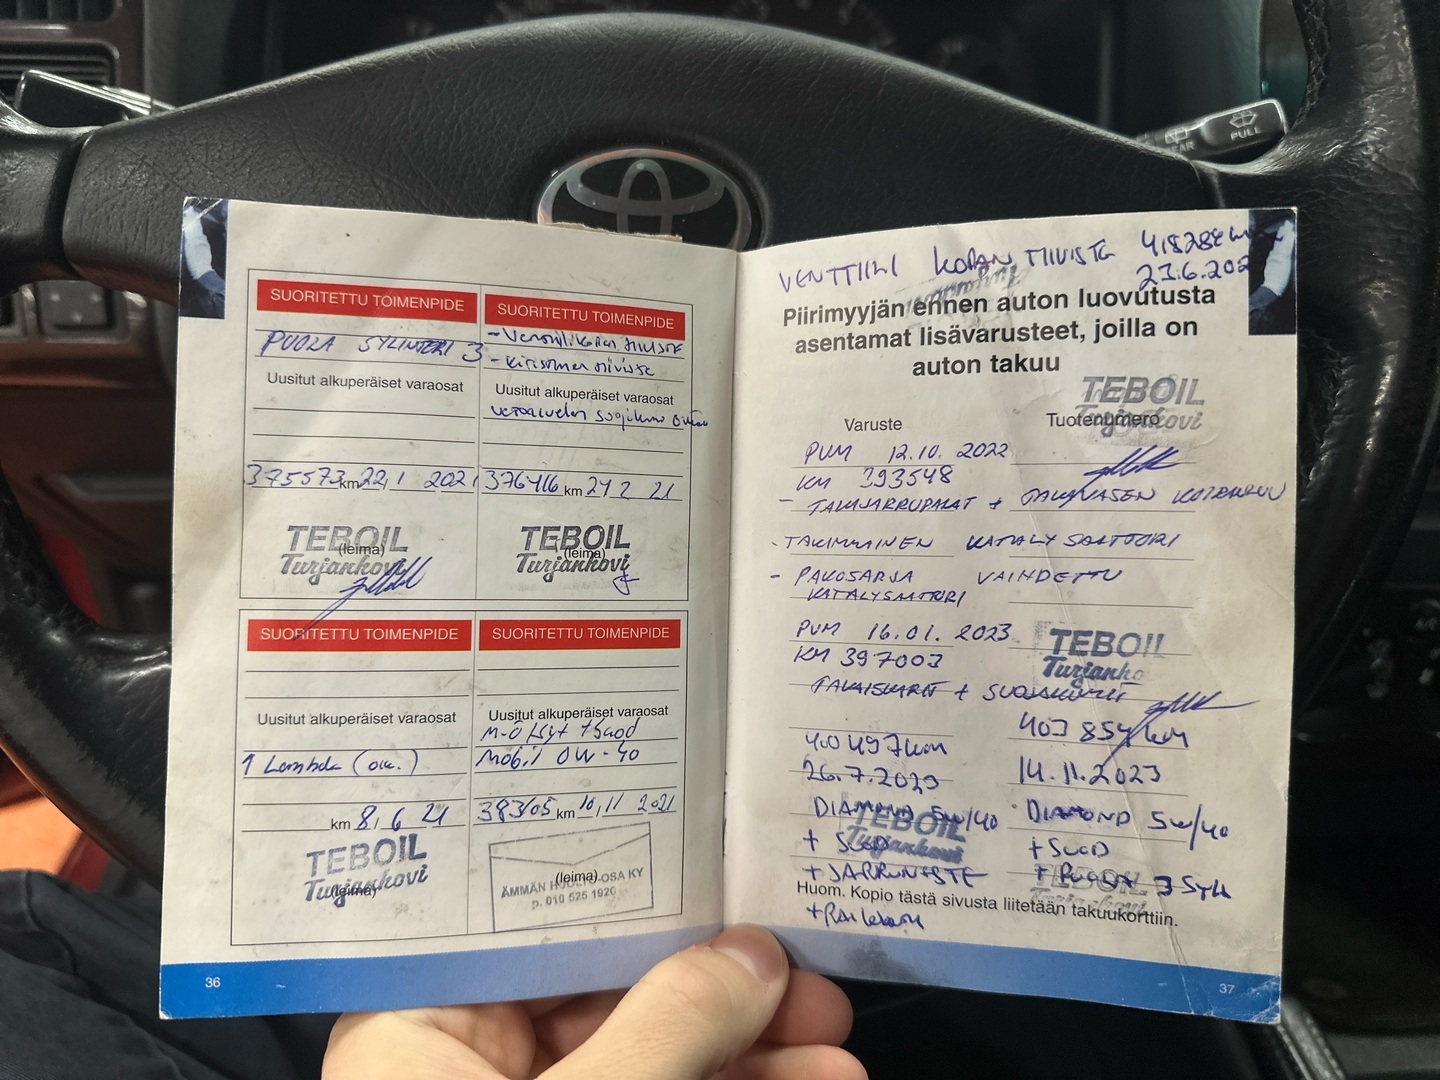 PULL
SUORITETTU TOIMENPIDE
PUOLA SYLINTERI 3
Uusitut alkuperäiset varaosat
375573 km 22 / 1 2021
(leima)
TEBOIL
Turjankovi
SUORITETTU TOIMENPIDE
- Venttiilikopan tiiviste
- Kiristimen tiiviste
Uusitut alkuperäiset varaosat
Vetoakselin suojakumi
376416 km 24 2 21
(leima)
TEBOIL
Turjankovi
SUORITETTU TOIMENPIDE
Uusitut alkuperäiset varaosat
1 Lambda
km 8 / 6 21
(leima)
TEBOIL
Turjankovi
SUORITETTU TOIMENPIDE
Uusitut alkuperäiset varaosat
M-Öljyt + Suod
Mobil 0W-40
383105 km 10 / 11 2021
(leima)
ÄMMÄN HUOLTO-OSA KY
p. 010 525 1920
36
VENTTIILI KOPAN TIIVISTE 418284 km
23.6.202
Piirimyyjän ennen auton luovutusta
asentamat lisävarusteet, joilla on
auton takuu
TEBOIL
Turjankovi
Varuste Tuotenumero
PVM 12.10. 2022
KM 393548
- TAKAJARRUPALAT +
- TAKIMMAINEN KATALYSAATTORI
- PAKOSARJA VAIHDETTU
KATALYSAATTORI
PVM 16.01. 2023
KM 397003
TEBOIL
TAKAISKARIT + SUOJAKUMIT
400497km
26.7.2023
DIAMOND 5W/40
+ SUOD
+ JARRUNESTE
TEBOIL
Turjankovi
403 854 km
14.11.2023
DIAMOND 5W/40
+ SUOD
+ PUOLA 3 Syl
Huom. Kopio tästä sivusta liitetään takuukorttiin.
37